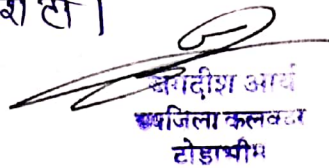 श हो।
जगदीश आर्य
उपजिला कलक्टर
टोडाभीम